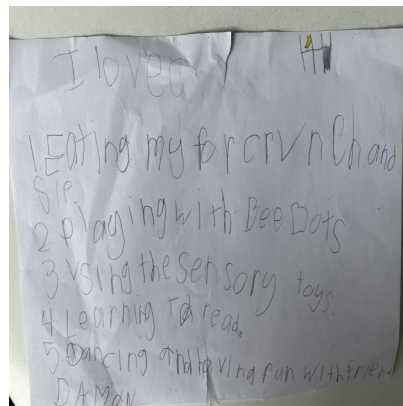 I loved
1. Eating my for crvnch and
Sip
2 playing with Bee Bots
3 vsing the sensory toys.
4 Learning to read.
5. Dancing and having fun with friend
DAMON